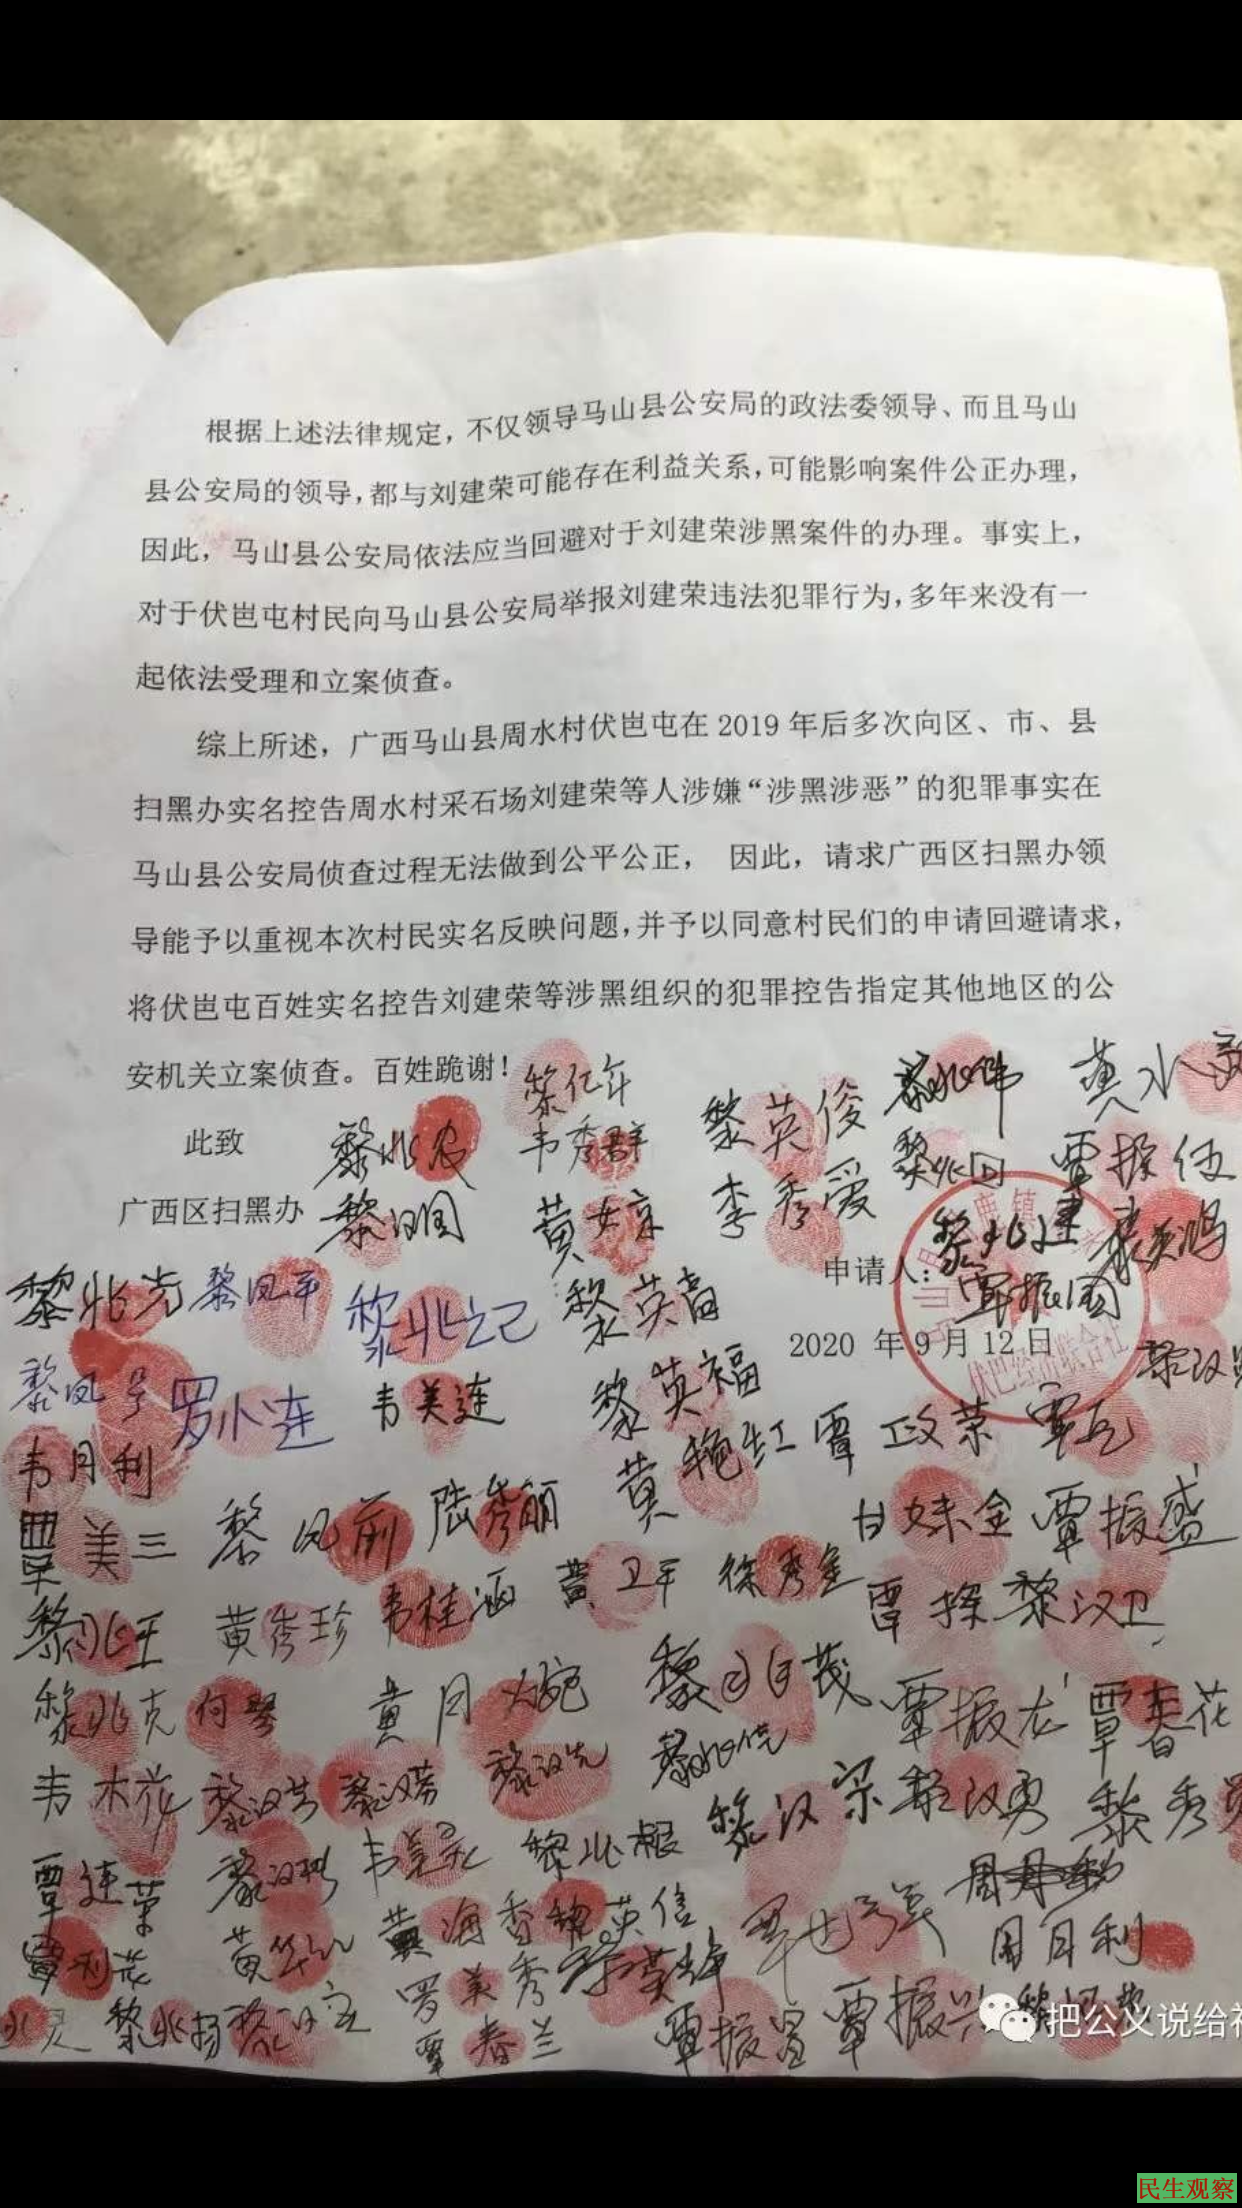 根据上述法律规定，不仅领导马山县公安局的政法委领导、而且马山
县公安局的领导，都与刘建荣可能存在利益关系，可能影响案件公正办理，
因此，马山县公安局依法应当回避对于刘建荣涉黑案件的办理。事实上，
对于伏岜屯村民向马山县公安局举报刘建荣违法犯罪行为，多年来没有一
起依法受理和立案侦查。
综上所述，广西马山县周水村伏岜屯在 2019 年后多次向区、市、县
扫黑办实名控告周水村采石场刘建荣等人涉嫌“涉黑涉恶”的犯罪事实在
马山县公安局侦查过程无法做到公平公正， 因此，请求广西区扫黑办领
导能予以重视本次村民实名反映问题，并予以同意村民们的申请回避请求，
将伏岜屯百姓实名控告刘建荣等涉黑组织的犯罪控告指定其他地区的公
安机关立案侦查。百姓跪谢！
黎仁年 黎英俊 黎兆伟 黄水
此致 黎兆农 韦秀群 李秀爱 黎兆回
广西区扫黑办 黎汉国 黄女京
申请人： 黎兆建 覃振国
黎兆光 黎凤平 黎兆记 黎英高
2020 年 9 月 12 日
罗小连 韦美连 黎英福
韦月利 黄艳红 覃政荣
覃美三 黎凤前 陆秀丽 甘妹金 覃振盛
黎兆王 黄秀珍 韦桂涵 黄卫平 徐秀金 黎汉卫
黎兆克 何琴 黄月婉 黎兆茂 覃振龙 覃春花
韦木花 黎汉芳 黎汉先 黎汉宗 黎汉勇 黎秀
覃连荣 黎兆根
黄海香 黎英信 周月利
罗美秀
黎兆扬 覃春兰 覃振冒 覃振兴
把公义说给
民生观察